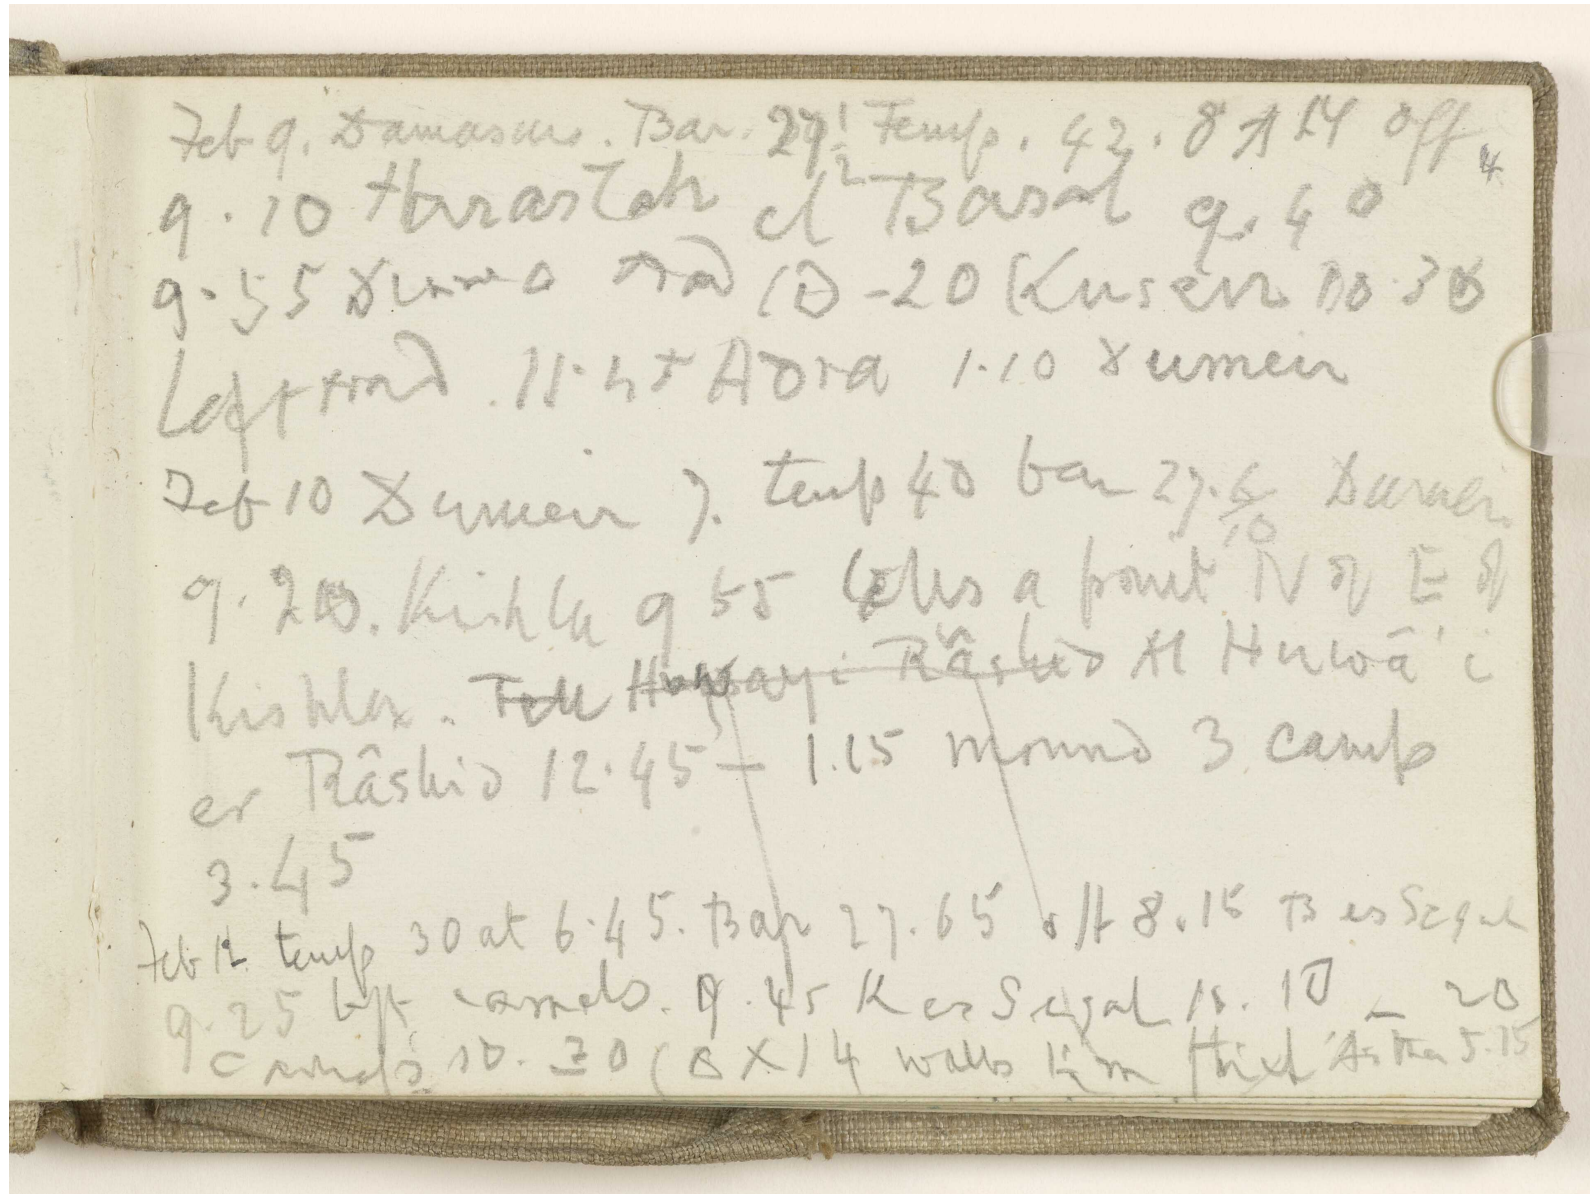 Feb 9. Damascus. Bar. 27 1/2 Temp. 42. 8 AM off
4
9.10 Harastah el Basal 9.40
9.55 Duma road 10-20 Kuseir 10.30
Left road. 11.45 Adra 1.10 Dumeir
Feb 10 Dumeir 7. temp 40 bar 27.6/10 Dumeir
9.20. Kishla 9 55 a point N of E of
Kishla. Tell Râshid Al Huwâ'i
er Râshid 12.45 – 1.15 mound 3 camp
3.45
Feb 12 temp 30 at 6.45. Bar 27.65 off 8.15 B es Segal
9.25 left camels. 9.45 K es Segal 10.10 – 20
camels 10.30 ( X 14 walls thick 5.15